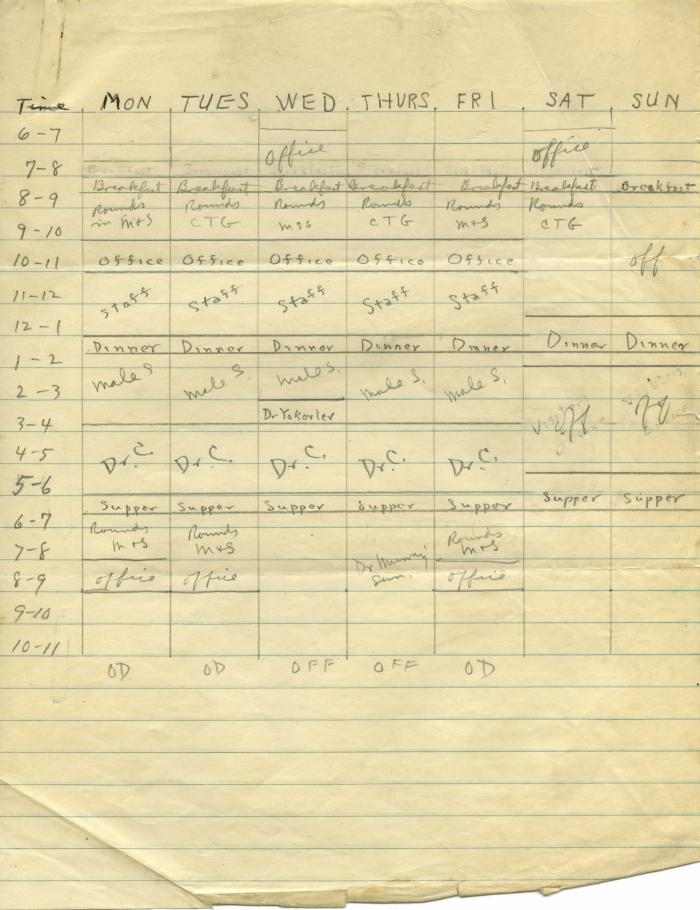 Time MON TUES WED THURS FRI SAT SUN
6-7
Office office
7-8
Breakfast Breakfast Breakfast Breakfast Breakfast Breakfast Breakfast
8-9
Rounds Rounds Rounds Rounds Rounds Rounds
in M+S CTG M+S CTG M+S CTG
9-10
10-11 Office Office Office Office Office off
11-12 Staff Staff Staff Staff Staff
12-1
Dinner Dinner Dinner Dinner Dinner Dinner Dinner
1-2
Male S Male S. Male S. Male S. Male S.
2-3
Dr Yakovlev
3-4 Off Off
4-5 Dr C. Dr C. Dr C. Dr C. Dr C.
5-6
Supper Supper Supper Supper Supper Supper Supper
6-7
Rounds Rounds Rounds
M+S M+S M+S
7-8
Dr Murray
8-9 office office office
9-10
10-11
OD OD OFF OFF OD